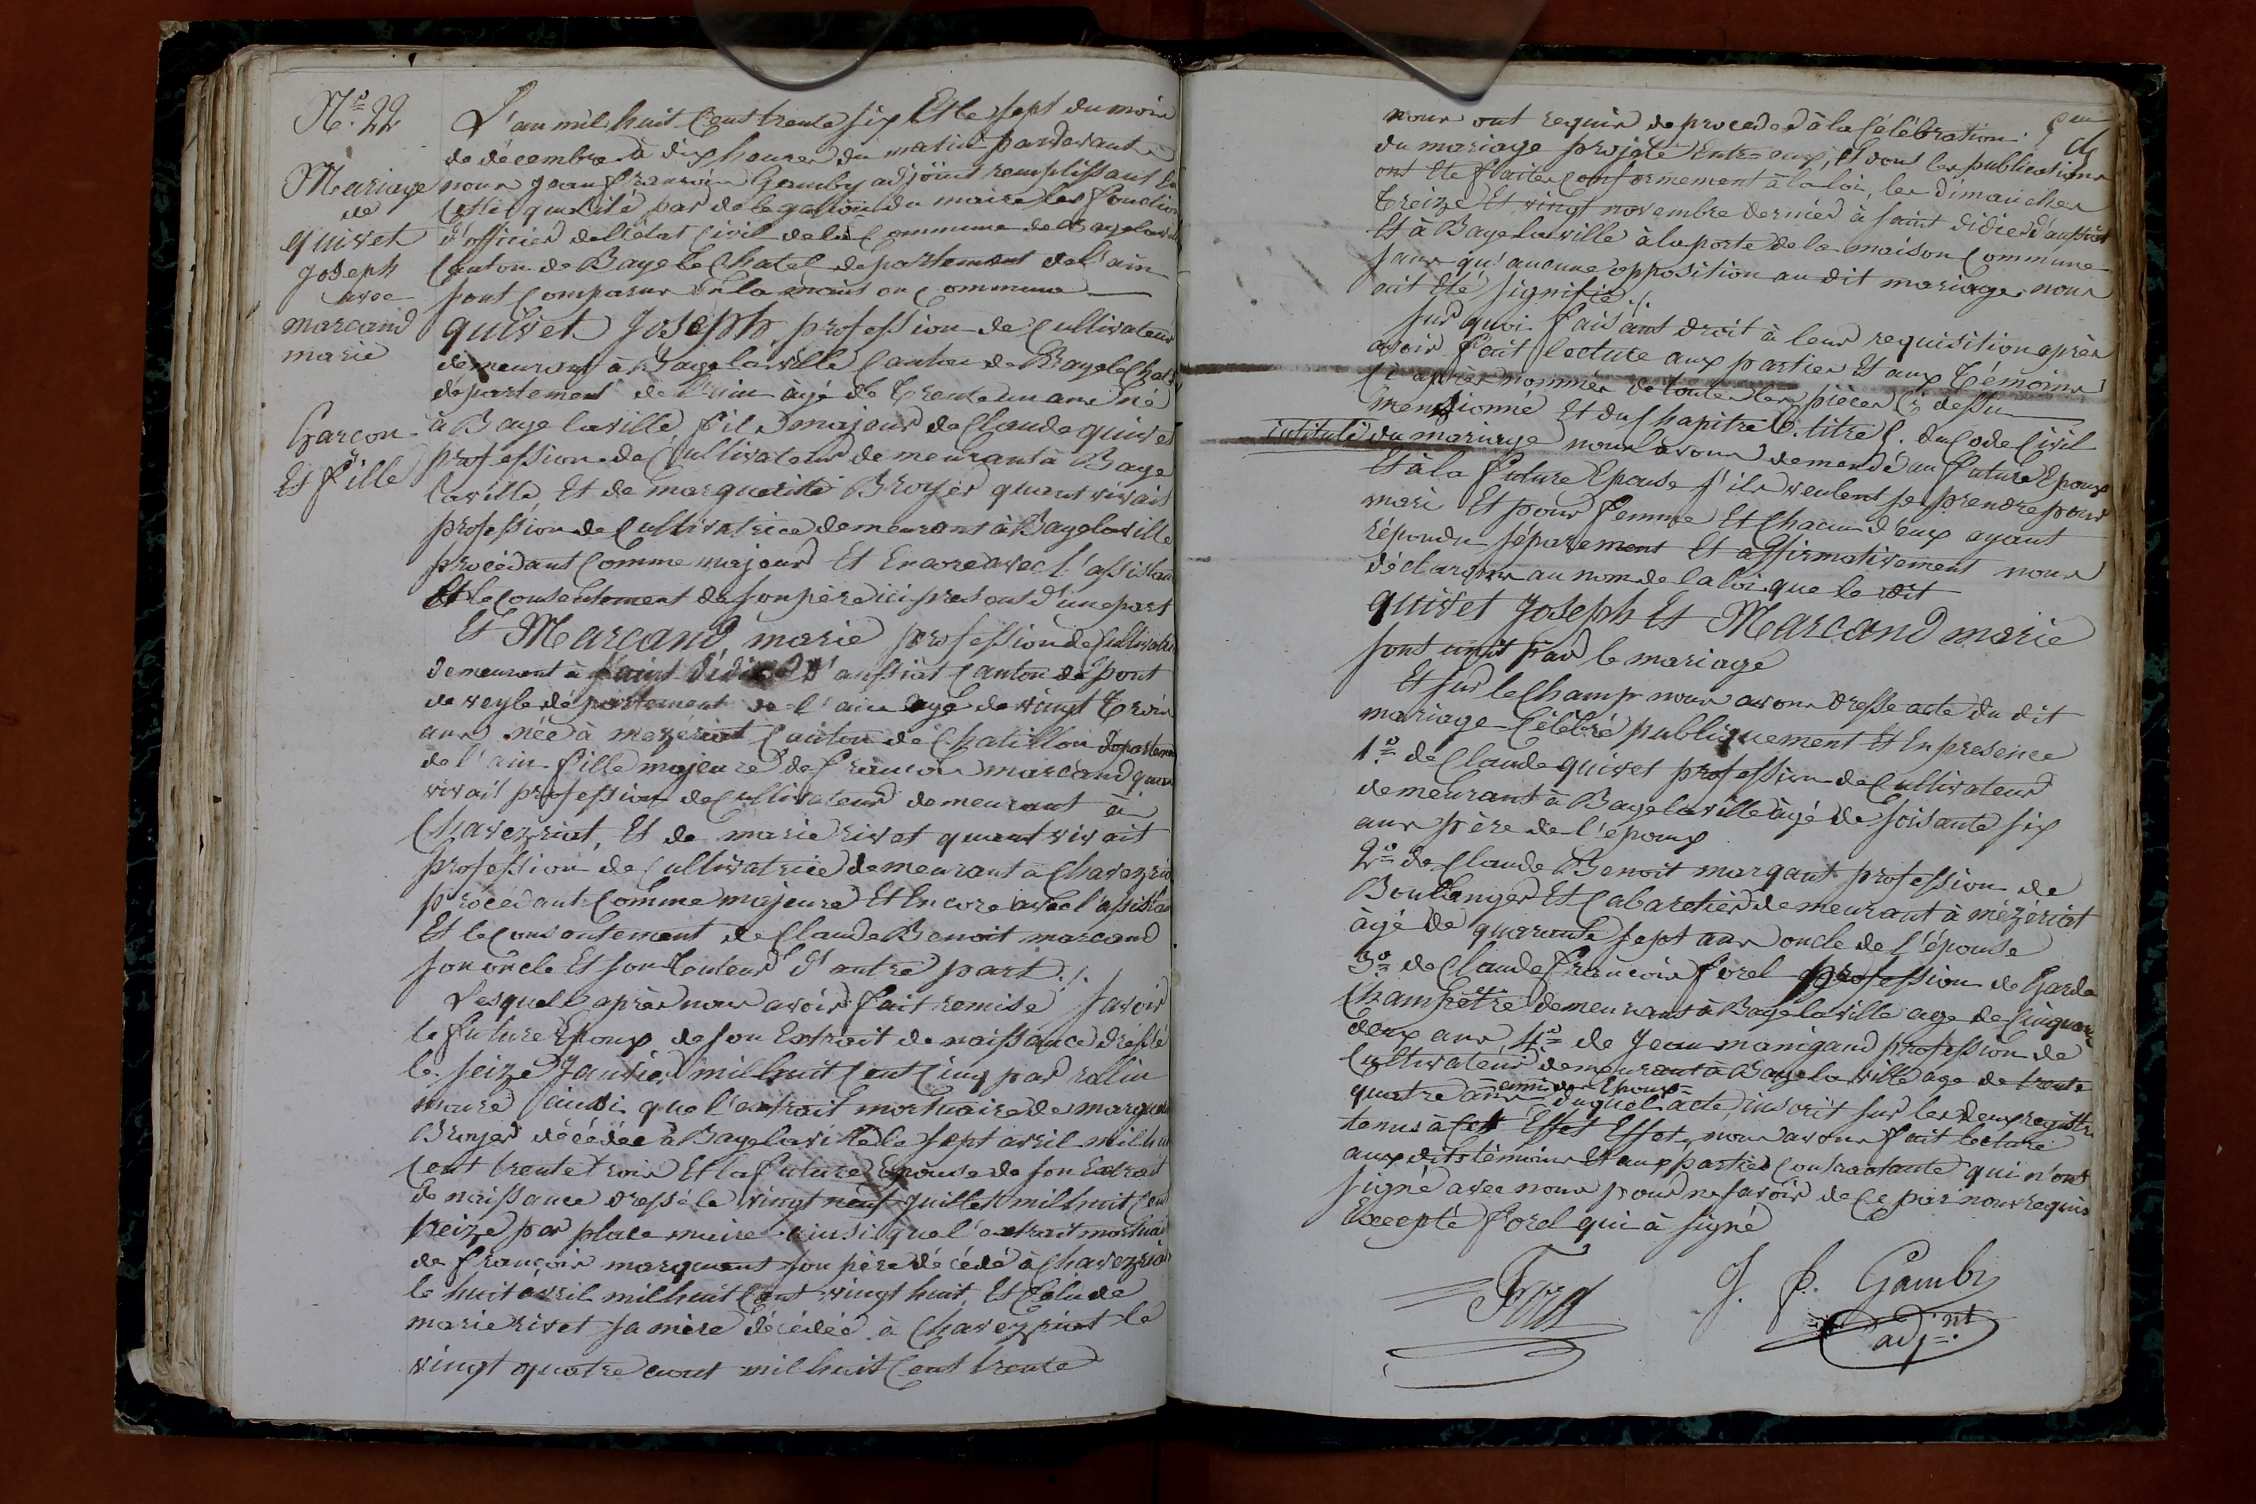 N.o 22
Mariage
de
quivet
Joseph
avec
marcand
marie
Garçon
Et fille
L'an mil huit Cent trente six Et le sept du mois
de décembre à dix heures du matin pardevant
nous jean françois Gamby adjoint remplissant En
cette qualité par délégation du maire les fonction
d'officier de l'état Civil de la Commune de Bagelaville
Canton de Bagé le Chatel departement de l'ain
sont Comparus En la maison Commune
quivet Joseph, profession de Cultivateur
demeurant à Bage la ville Canton de Bage le Chatel
departement de l'ain âgé de Trente un ans né
à Bage laville fils majeur de Claude quivet
profession de Cultivateur demeurant à Bage
laville Et de marguerite Broyer quant vivait
profession de Cultivatrice demeurant à Bagelaville
procédant Comme majeur Et Encore avec l'assistan
Et le Consentement de son père ici present d'une part
Et Marcand marie profession de Cultivatri
demeurant à saint Didier d'aussiat Canton de pont
de veyle département de l'ain âgé de vingt Trois
ans née à mezériat Canton de Chatillon departemen
de l'ain fille majeure de françois marcand quan
vivait profession de Cultivateur demeurant à
Chavezriat, Et de marie rivet quant vivait
profession de Cultivatrice demeurant à Chavezria
procédant Comme majeure Et Encore avec l'assistan
Et le Consentement de Claude Benoit marcand
son oncle Et son Tuteur d'autre part ./.
Lesquels après nous avoir fait remise savoir
le future Epoux de son Extrait de naissance dréssé
le seize Janvier mil huit Cent Cinq par
maire ainsi que l'extrait mortuaire de margue
Broyer décédée à Bagelaville le sept avril mil hu
Cent trente trois Et la future Epouse de son Extrait
de naissance dressé le vingt neuf juillet mil huit Cen
treize par place maire ainsi que l'extrait mortuai
de françois marquant son père décédé à Chavezria
le huit avril mil huit Cent vingt huit, Et Celui de
marie rivet sa mère décédée à Chaveyriat le
vingt quatre aout mil huit Cent trente
nous ont requis de proceder à la Célébration
du mariage projeté Entre eux, Et dont les publications
ont Ete faites Conformement à la loi, les dimanches
Treize Et vingt novembre dernier à saint didier d'aussiat
Et à Bage laville à la porte de la maison Commune
sans qu'aucune opposition au dit mariage nous
ait Eté signifie ./.
Sur quoi faisant droit à leur requisition après
avoir fait lecture aux parties Et aux Témoins
Ci après nommés de toutes les pièces Ci dessu
mentionné Et du Chapitre 6. titre 5. du Code Civil
intitulé du mariage nous avons demandé au future Epoux
Et à la future Epouse s'ils veulent se prendre pour
mari Et pour femme Et Chacun d'eux ayant
répondu séparement Et affirmativement nous
déclarons au nom de la loi que le dit
quivet Joseph Et Marcand marie
sont unit par le mariage
Et sur le Champ nous avons dresse acte du dit
mariage Célébré publiquement Et En presence
1.o de Claude quivet profession de Cultivateur
demeurant à Bage laville âgé de soisante six
ans père de l'époux
2.o de Claude Benoit marqant profession de
Boullanger Et Cabaretier demeurant à mézériat
âgé de quarante sept ans oncle de l'épouse
3.o de Claude françois forel profession de Garde
Champêtre demeurant à Bage laville age de Cinquante
deux ans, 4.o de Jean manigand profession de
Cultivateur demeurant à Bage laville age de trente
quatre ans amis des Epoux duquel acte inscrit sur les deux registre
tenus à Cet Effet Effet, nous avons fait lecture
aux dits témoins Et aux parties Contractante qui n'ont
signé avec nous pour ne savoir de Ce par nous requis
Excepté forel qui à signé
Forel
J. f. Gamby
adj.nt